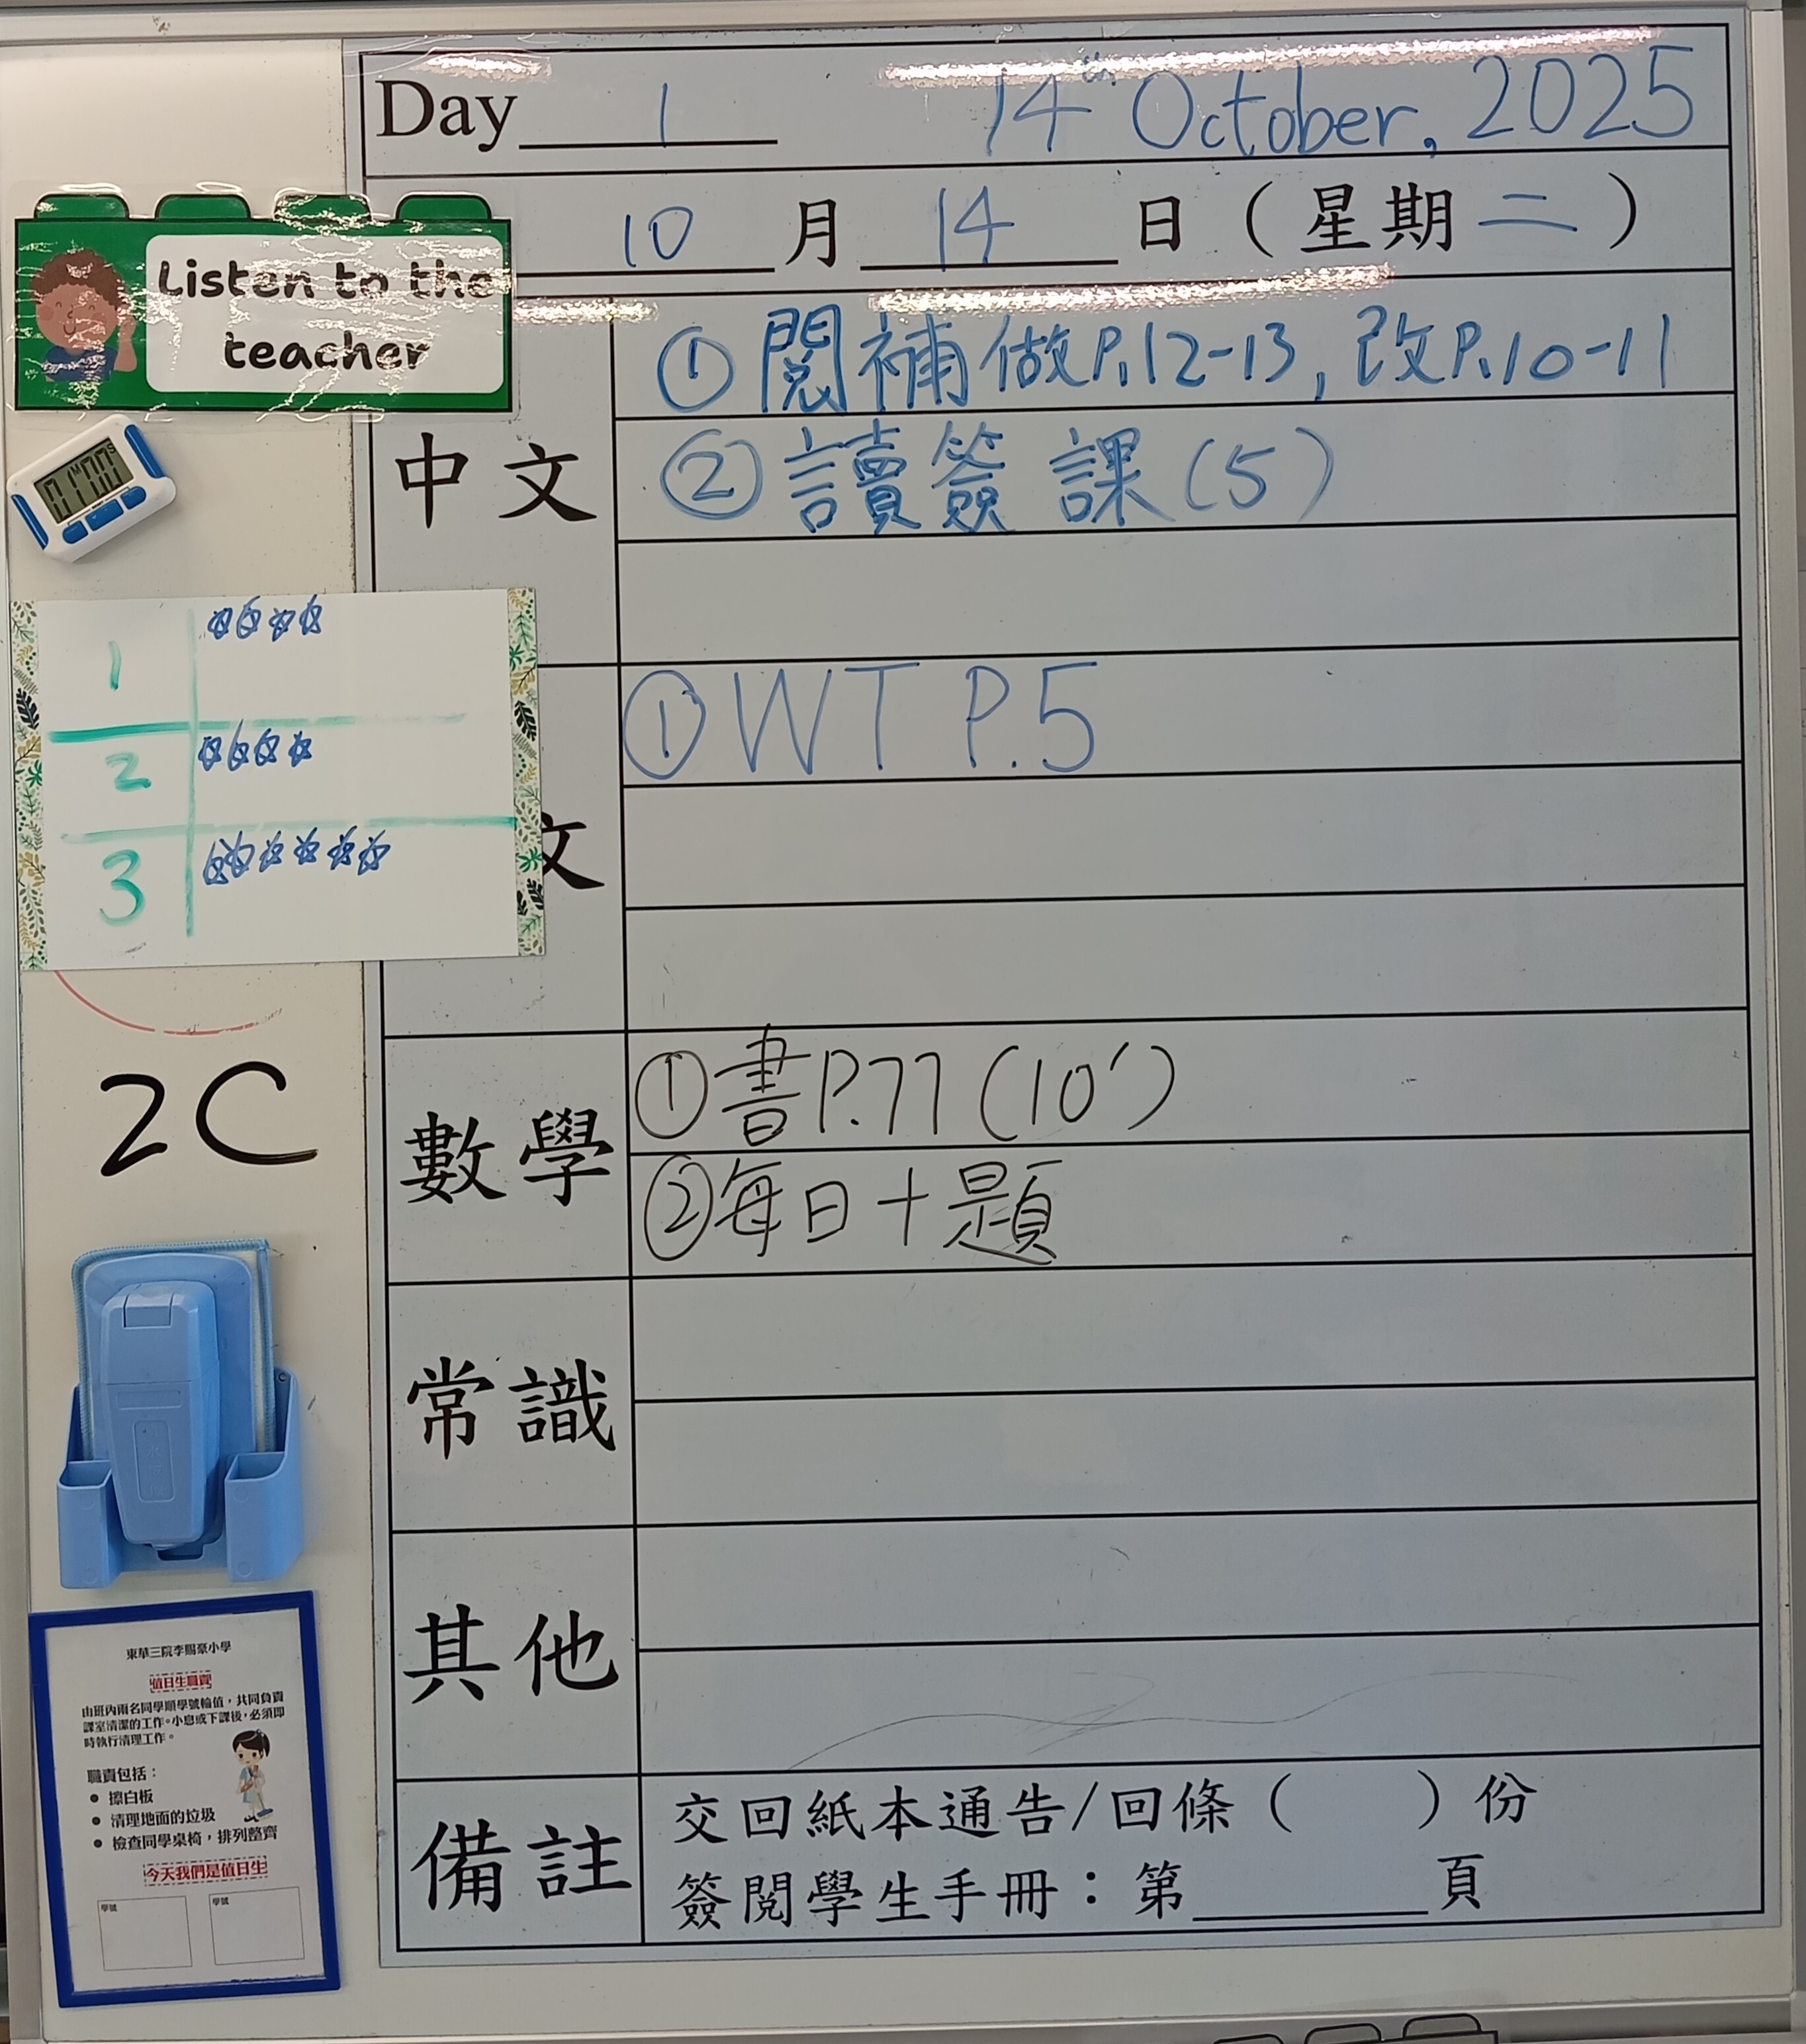 Day 1 14th October, 2025
10 月 14 日 (星期二)
Listen to the
teacher
中文
① 閱補做P.12-13, 改P.10-11
② 讀簽 課(5)
1
2
3
文
① WT P.5
2C
數學
① 書P.77 (10')
② 每日十題
常識
其他
備註
交回紙本通告/回條( )份
簽閱學生手冊：第 頁
東華三院李賜豪小學
值日生職責
由班內兩名同學順學號輪值，共同負責
課室清潔的工作。小息或下課後，必須即
時執行清理工作。
職責包括：
● 擦白板
● 清理地面的垃圾
● 檢查同學桌椅，排列整齊
今天我們是值日生
學號 學號